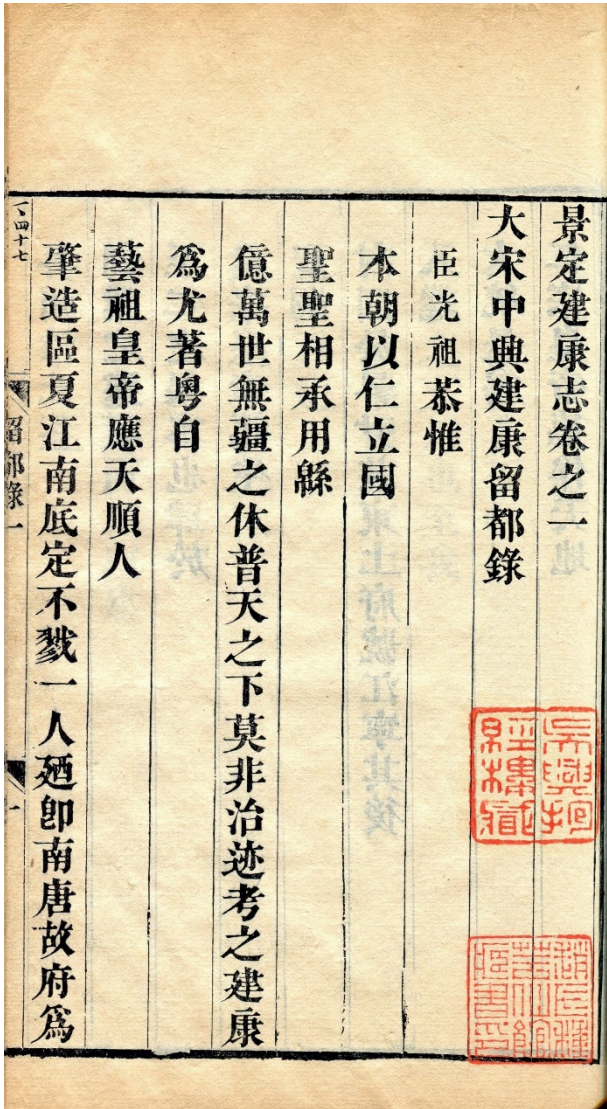 景定建康志卷之一
大宋中興建康留都錄
臣光祖恭惟
本朝以仁立國
聖聖相承用緜
億萬世無疆之休普天之下莫非治迹考之建康
爲尤著粵自
藝祖皇帝應天順人
肇造區夏江南底定不戮一人廼卽南唐故府爲
四十七
留都錄一
一